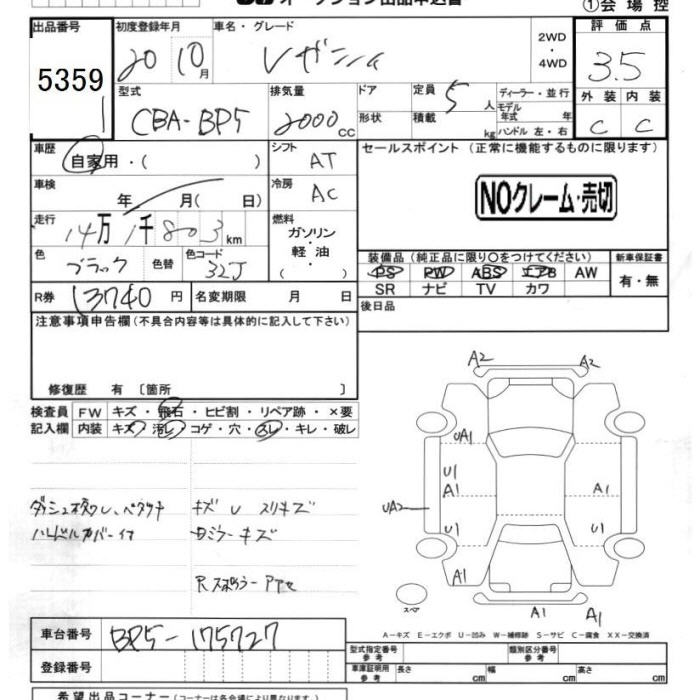 オークション出品申込書
①会場控
出品番号
5359
初度登録年月
20 10月
車名・グレード
レガシィ
2WD
・
4WD
評価点
3.5
外装 内装
C C
型式
CBA-BP5
排気量
2000cc
ドア
形状
定員 5人
積載 kg
ディーラー・並行
モデル年式 年
ハンドル 左・右
車歴
自家用・( )
シフト
AT
セールスポイント (正常に機能するものに限ります)
NOクレーム・売切
車検
年 月(日)
冷房
AC
走行
14万1千803km
燃料
ガソリン
・
軽油
色
ブラック
色替
色コード
32J
装備品(純正品に限り○をつけてください)
PS PW ABS エアB AW
SR ナビ TV カワ
新車保証書
有・無
R券 13740円
名変期限 月 日
後日品
注意事項申告欄(不具合内容等は具体的に記入して下さい)
修復歴 有〔箇所 〕
検査員
記入欄
FW キズ・飛石・ヒビ割・リペア跡・×要
内装 キズ・汚レ・コゲ・穴・スレ・キレ・破レ
キズ
キズ
ハンドルカバーイタ
A2 A2
UA1
U1
A1 A1
UA2
U1 U1
A1
A1 A1
スペア
A-キズ E-エクボ U-凹み W-補修跡 S-サビ C-腐食 XX-交換済
車台番号
BP5-175727
登録番号
型式指定番号
参考
類別区分番号
参考
車庫証明用
参考
長さ cm 幅 cm 高さ cm
希望出品コーナー(コーナーは各会場により異なります)